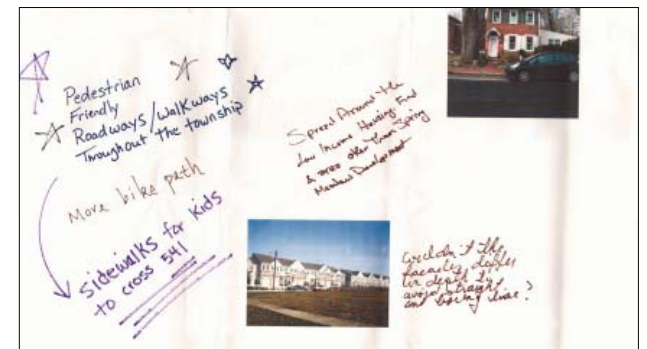 Pedestrian
Friendly
Roadways/Walkways
Throughout the township
More bike path
Sidewalks for kids
to cross 541
Spread Around the
Low Income Housing. Find
a area other than Spring
Meadow Development
Couldn't the
facades differ
in depth to
avoid straight
and boring line?